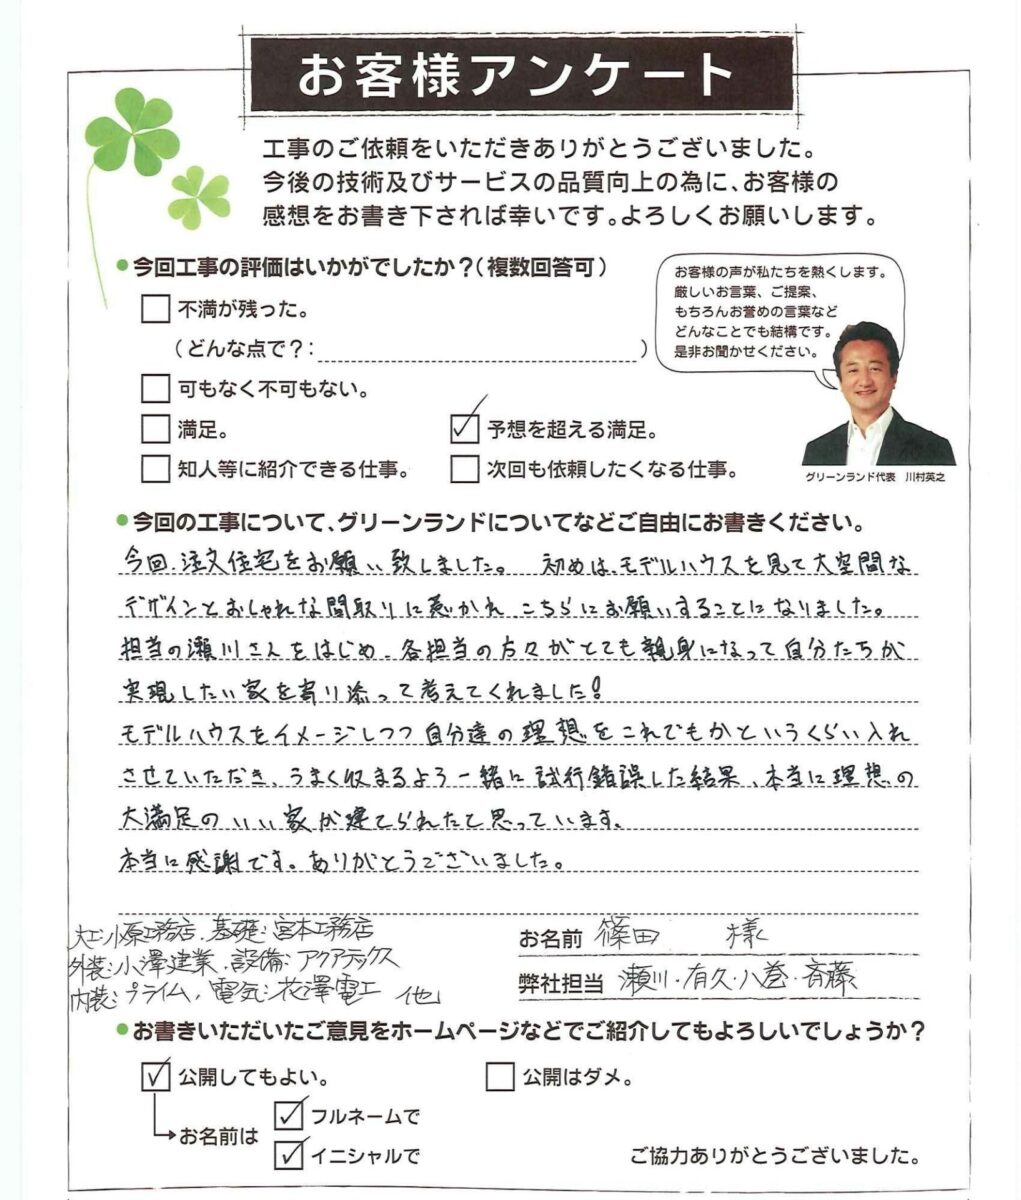 お客様アンケート
工事のご依頼をいただきありがとうございました。
今後の技術及びサービスの品質向上の為に、お客様の
感想をお書き下されば幸いです。よろしくお願いします。
●今回工事の評価はいかがでしたか？（複数回答可）
不満が残った。
（どんな点で？：　）
可もなく不可もない。
満足。
予想を超える満足。
知人等に紹介できる仕事。
次回も依頼したくなる仕事。
お客様の声が私たちを熱くします。
厳しいお言葉、ご提案、
もちろんお誉めの言葉など
どんなことでも結構です。
是非お聞かせください。
グリーンランド代表　川村英之
●今回の工事について、グリーンランドについてなどご自由にお書きください。
今回、注文住宅をお願い致しました。　初めは、モデルハウスを見て大空間な
デザインとおしゃれな間取りに惹かれ、こちらにお願いすることになりました。
担当の瀬川さんをはじめ、各担当の方々がとても親身になって自分たちが
実現したい家を寄り添って考えてくれました!
モデルハウスをイメージしつつ自分達の理想をこれでもかというくらい入れ
させていただき、うまく収まるよう一緒に試行錯誤した結果、本当に理想の
大満足のいい家が建てられたと思っています。
本当に感謝です。ありがとうございました。
大工:小原工務店、基礎:宮本工務店
外装:小澤建業、設備:アクアテックス
内装:プライム、電気:花澤電工　他
お名前　篠田　様
弊社担当　瀬川・有久・八巻・斉藤
●お書きいただいたご意見をホームページなどでご紹介してもよろしいでしょうか？
公開してもよい。
公開はダメ。
お名前は
フルネームで
イニシャルで
ご協力ありがとうございました。